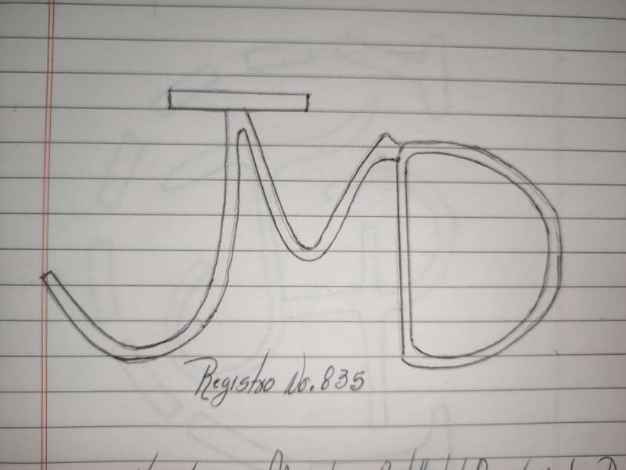 JMD
Registro No. 835